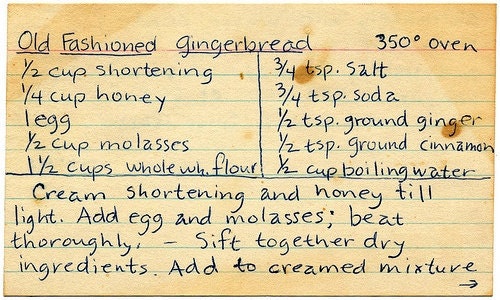 Old Fashioned gingerbread 350° oven
1/2 cup shortening
1/4 cup honey
1 egg
1/2 cup molasses
1 1/2 cups whole wh. flour
3/4 tsp. salt
3/4 tsp. soda
1/2 tsp. ground ginger
1/2 tsp. ground cinnamon
1/2 cup boiling water
Cream shortening and honey till
light. Add egg and molasses; beat
thoroughly. — Sift together dry
ingredients. Add to creamed mixture
→